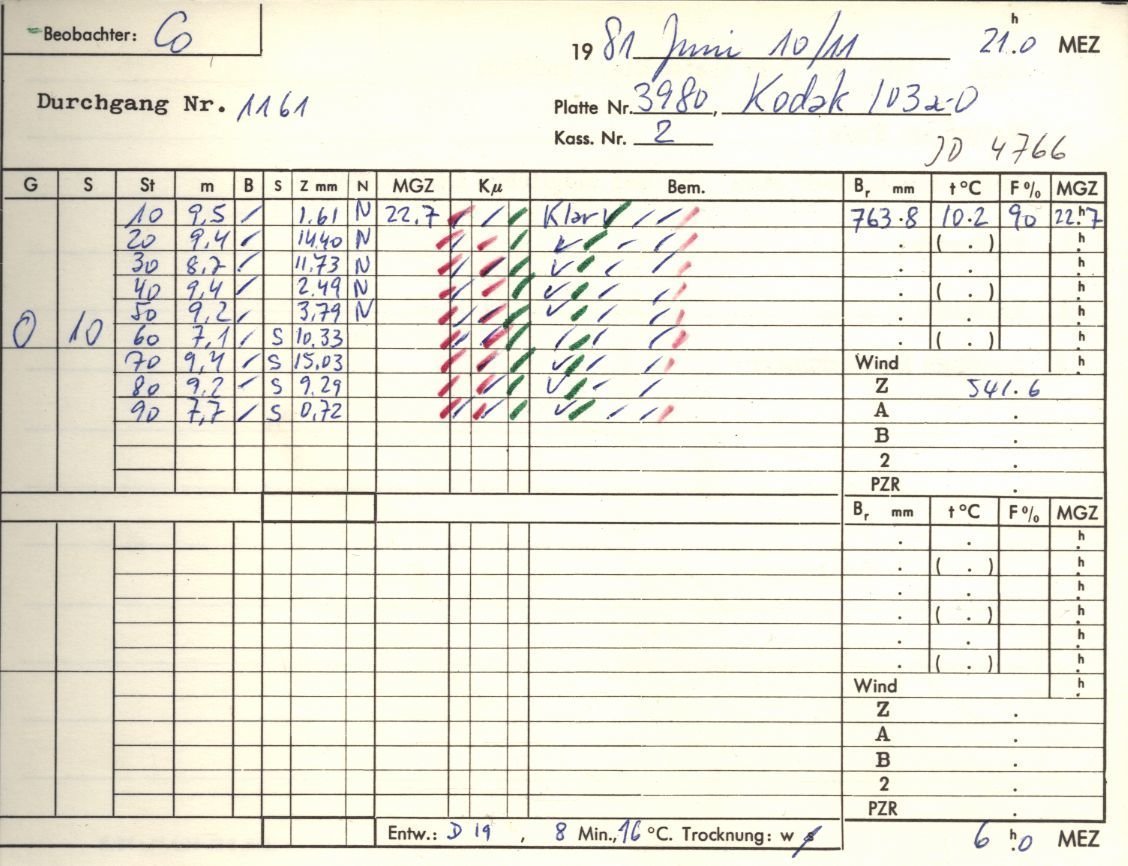 Beobachter: Co
19 81 Juni 10/11 21.0 h MEZ
Durchgang Nr. 1161
Platte Nr. 3980, Kodak 103a-O
Kass. Nr. 2
JD 4766
G S St m B S Z mm N MGZ Kμ Bem. Br mm t °C F % MGZ
10 9,5 / 1.61 N 22,7 Klar 763.8 10.2 90 22.h7
20 9,4 / 14.40 N . ( . ) h.
30 8,7 / 11.73 N . . h.
40 9,4 / 2.49 N . ( . ) h.
50 9,2 / 3.79 N . . h.
0 10 60 7,1 / S 10.33 . ( . ) h.
70 9,4 / S 15.03 Wind h.
80 9,2 / S 9.29 Z 541.6
90 7,7 / S 0.72 A .
B .
2 .
PZR .
Br mm t °C F % MGZ
. . h.
. ( . ) h.
. . h.
. ( . ) h.
. . h.
. ( . ) h.
Wind h.
Z .
A .
B .
2 .
PZR .
Entw.: D 19, 8 Min., 16 °C. Trocknung: w s
6 h.0 MEZ